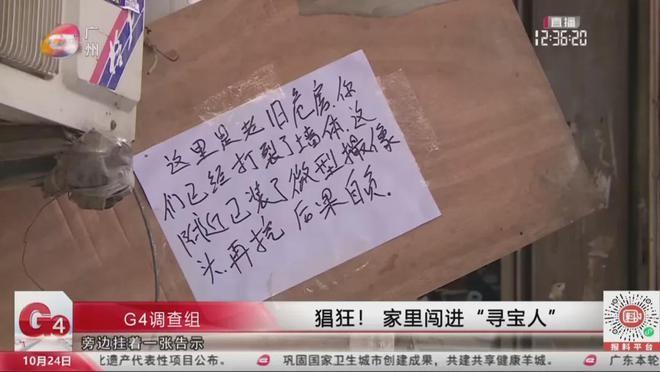 广州
直播
12:36:20
这里是老旧危房.你
们已经打裂了墙体.这
附近已装了微型摄像
头.再挖 后果自负.
G4
G4调查组
猖狂！ 家里闯进“寻宝人”
旁边挂着一张告示
报料平台
10月24日
化遗产代表性项目公布。
巩固国家卫生城市创建成果，共建共享健康羊城。
广东本轮